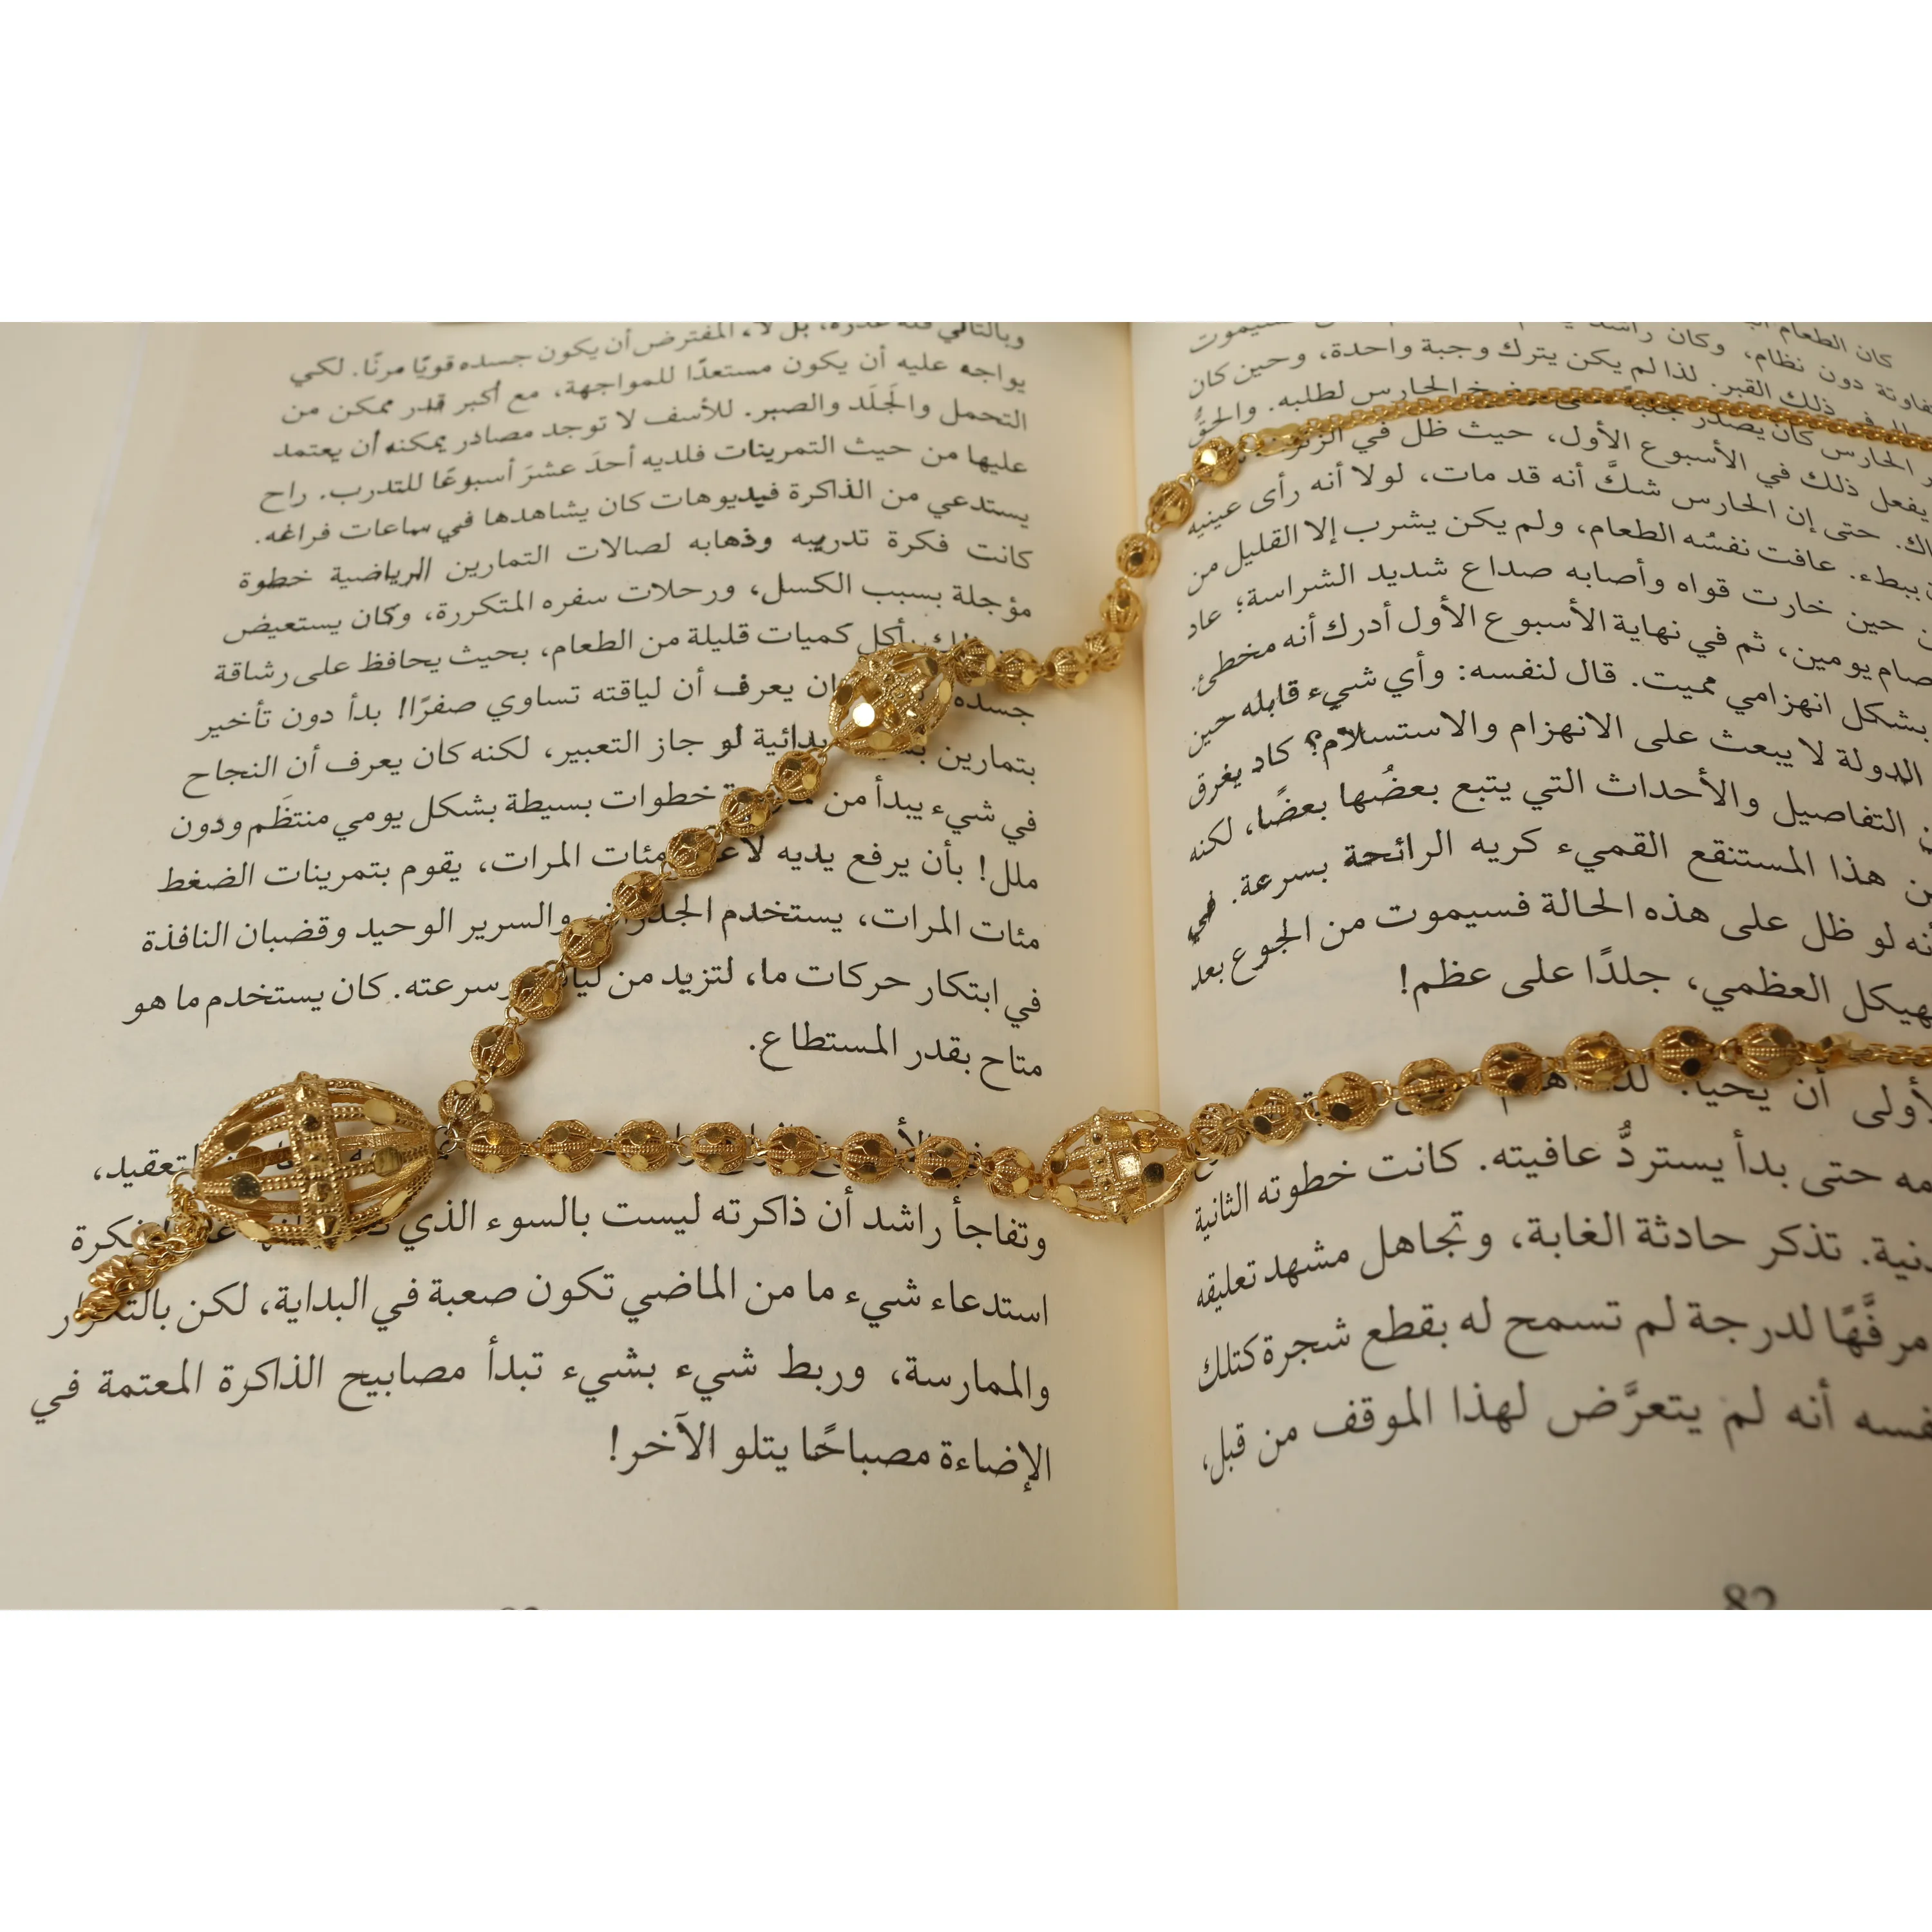 كان الطعام
فاوتة دون نظام، وكان راشد
في ذلك القبر. لذا لم يكن يترك وجبة واحدة، وحين كان
الحارس كان يصدر الحارس لطلبه. والحقُّ
يفعل ذلك في الأسبوع الأول، حيث ظل في
اك. حتى إن الحارس شكَّ أنه قد مات، لولا أنه رأى عينيه
ببطء. عافت نفسُه الطعام، ولم يكن يشرب إلا القليل من
حين خارت قواه وأصابه صداع شديد الشراسة؛ عاد
صام يومين، ثم في نهاية الأسبوع الأول أدرك أنه مخطئ.
بشكل انهزامي مميت. قال لنفسه: وأي شيء قابله حين
الدولة لا يبعث على الانهزام والاستسلام؟ كاد يغرق
التفاصيل والأحداث التي يتبع بعضُها بعضًا، لكنه
هذا المستنقع القميء كريه الرائحة بسرعة. في
نه لو ظل على هذه الحالة فسيموت من الجوع بعد
هيكل العظمي، جلدًا على عظم!
لأولى أن يحيا.
مه حتى بدأ يستردُّ عافيته. كانت خطوته الثانية
دنية. تذكر حادثة الغابة، وتجاهل مشهد تعليقه
مرفَّهًا لدرجة لم تسمح له بقطع شجرة كتلك
فسه أنه لم يتعرَّض لهذا الموقف من قبل،
82
وبالتالي بل لا، المفترض أن يكون جسده قويًا مرنًا. لكي
يواجه عليه أن يكون مستعدًا للمواجهة، مع أكبر قدر ممكن من
التحمل والجَلَد والصبر. للأسف لا توجد مصادر يمكنه أن يعتمد
عليها من حيث التمرينات فلديه أحدَ عشرَ أسبوعًا للتدرب. راح
يستدعي من الذاكرة فيديوهات كان يشاهدها في ساعات فراغه.
كانت فكرة تدريبه وذهابه لصالات التمارين الرياضية خطوة
مؤجلة بسبب الكسل، ورحلات سفره المتكررة، وكان يستعيض
بأكل كميات قليلة من الطعام، بحيث يحافظ على رشاقة
جسده يعرف أن لياقته تساوي صفرًا! بدأ دون تأخير
بتمارين بدائية لو جاز التعبير، لكنه كان يعرف أن النجاح
في شيء يبدأ من خطوات بسيطة بشكل يومي منتظَم ودون
ملل! بأن يرفع يديه لأعلى مئات المرات، يقوم بتمرينات الضغط
مئات المرات، يستخدم الجدران والسرير الوحيد وقضبان النافذة
في ابتكار حركات ما، لتزيد من لياقته وسرعته. كان يستخدم ما هو
متاح بقدر المستطاع.
التعقيد،
وتفاجأ راشد أن ذاكرته ليست بالسوء الذي فكرة
استدعاء شيء ما من الماضي تكون صعبة في البداية، لكن بالتكرار
والممارسة، وربط شيء بشيء تبدأ مصابيح الذاكرة المعتمة في
الإضاءة مصباحًا يتلو الآخر!